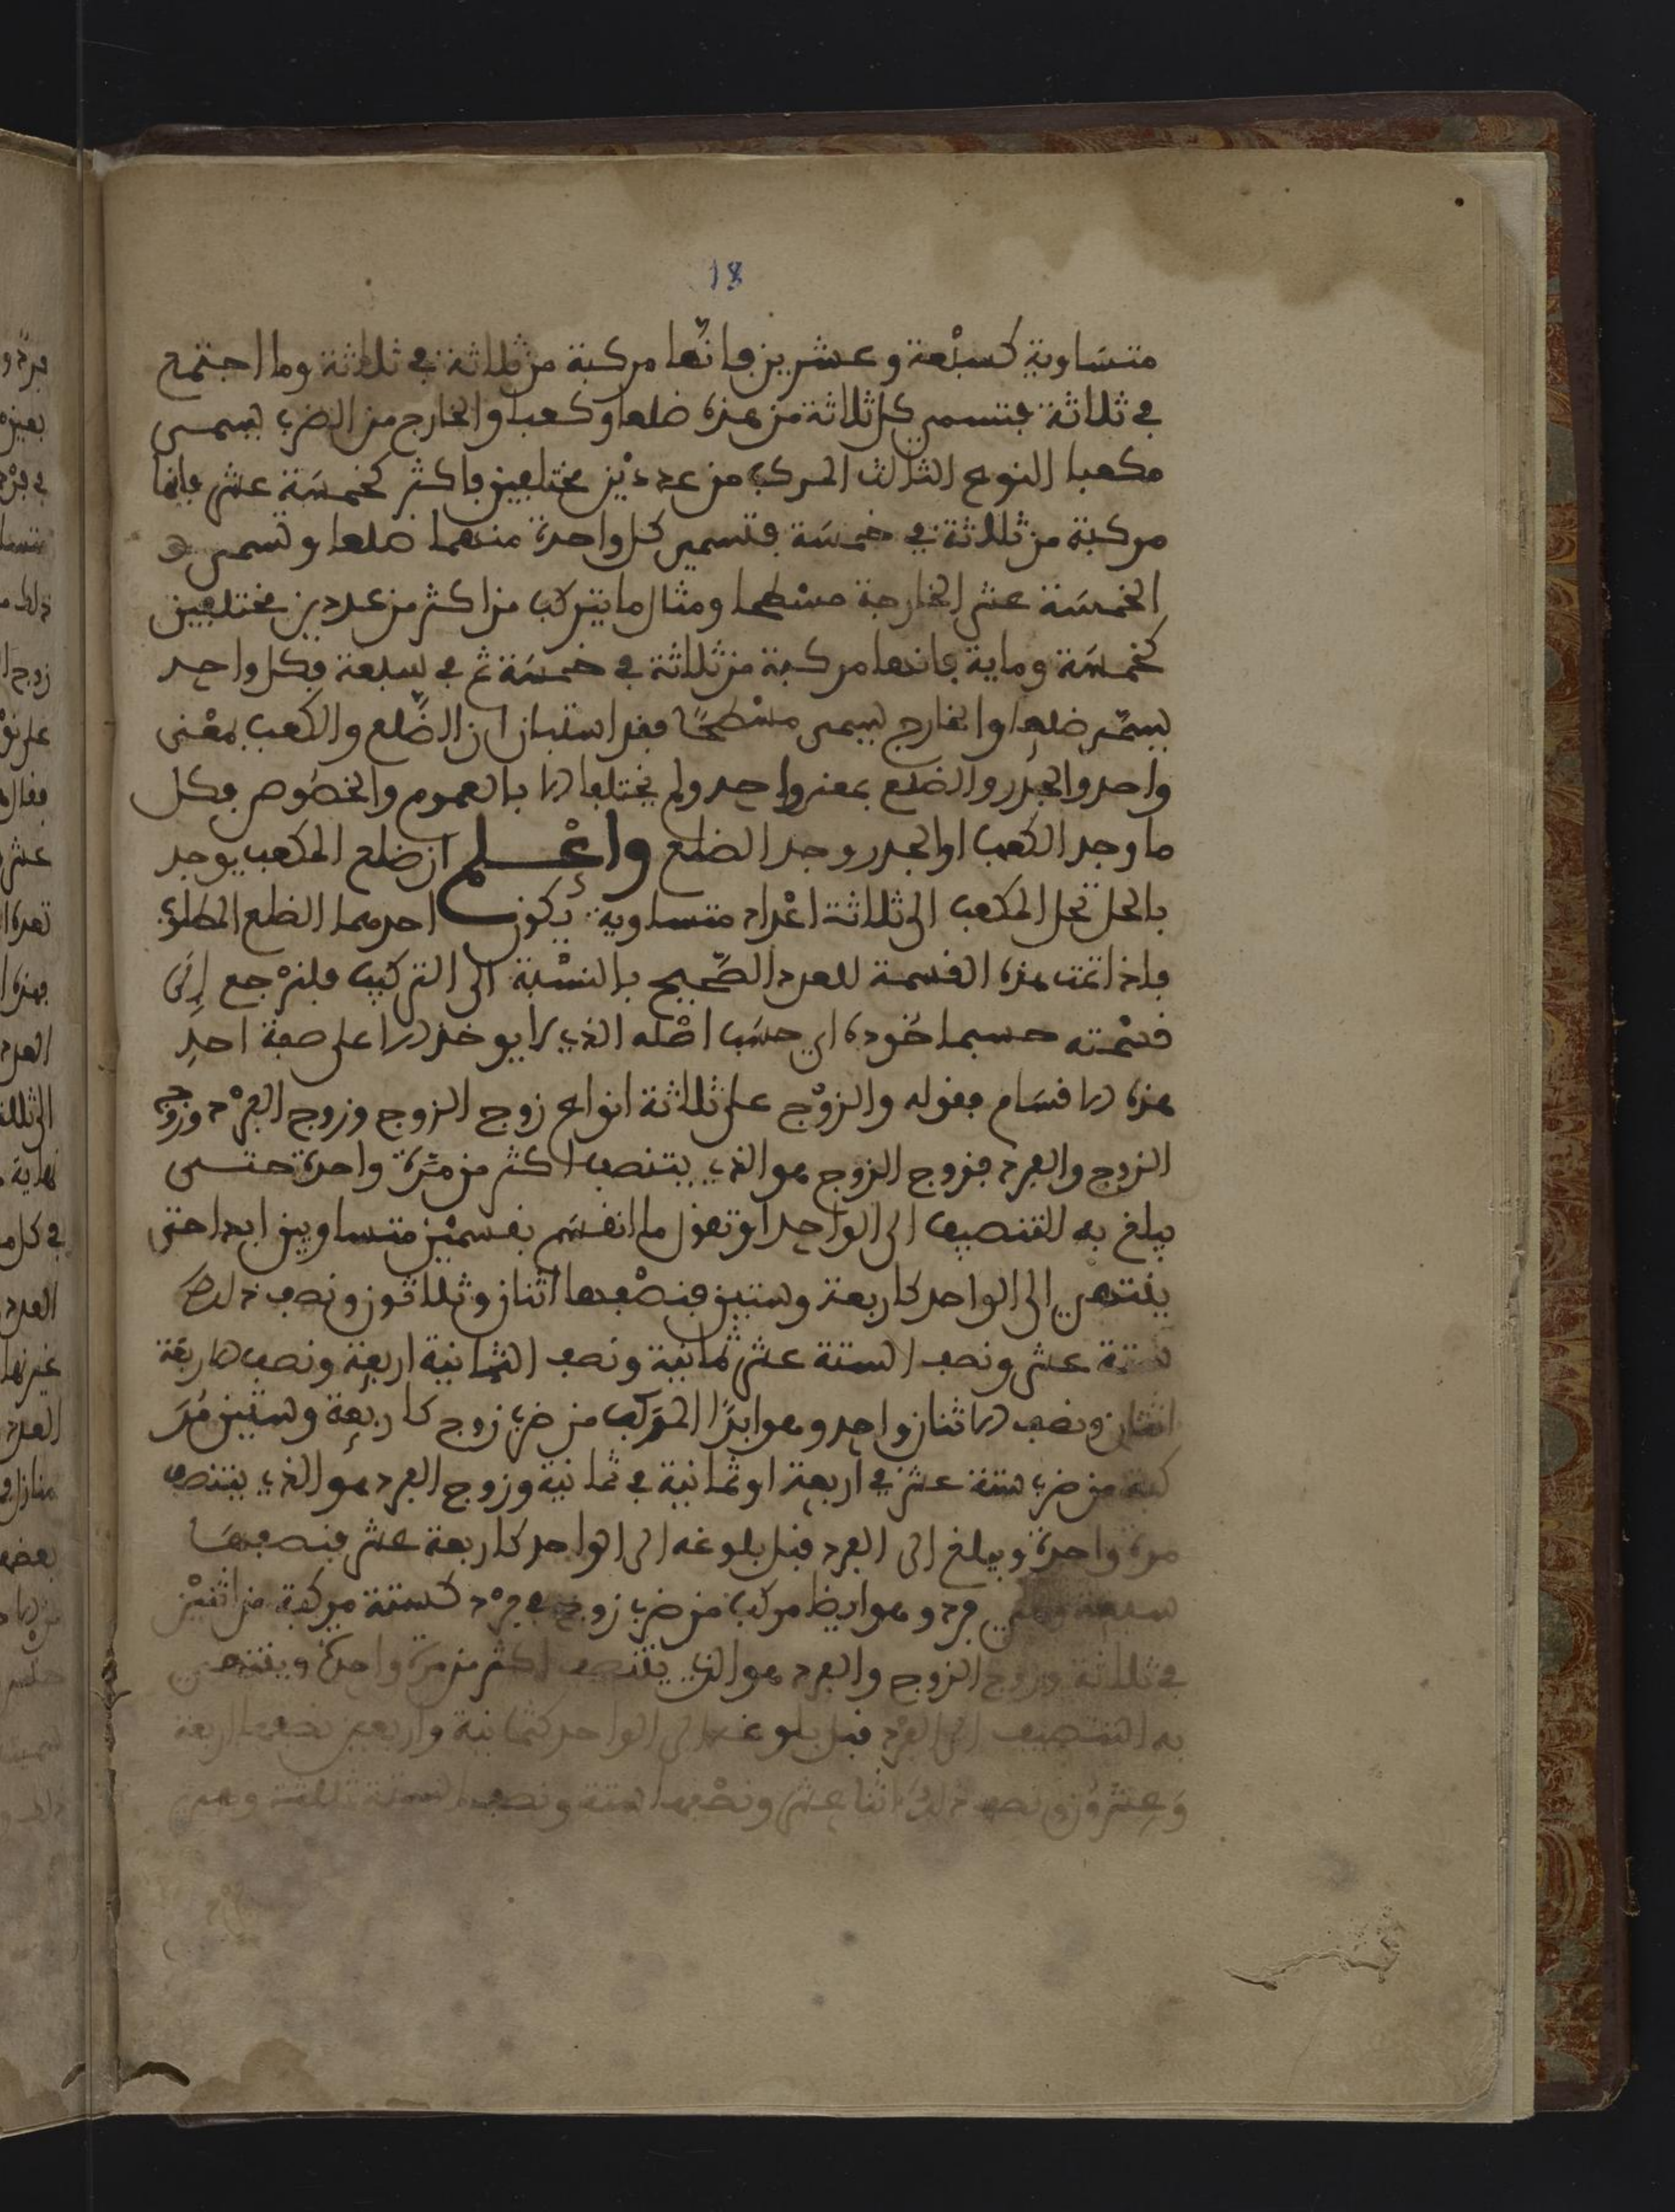 18
متساوية كسبعة وعشرين فانها مركبة من ثلاثة في ثلاثة وما اجتمع
في ثلاثة فتسمى كل ثلاثة من هذه ضلعا وكعبا والخارج من الضرب يسمى
مكعبا النوع الثالث المركب من عددين مختلفين فاكثر كخمسة عشر فانها
مركبة من ثلاثة في خمسة فتسمى كل واحدة منهما ضلعا وتسمى
الخمسة عشر الخارجة مسطحا ومثال ما يتركب من اكثر من عددين مختلفين
كخمسة وماية فانها مركبة من ثلاثة في خمسة ثم في سبعة فكل واحد
يسمى ضلعا والخارج يسمى مسطحًا فقد استبان ان الضّلع والكعب بمعْنى
واحد والجذر والضلع بمعنى واحد ولم يختلفا الا بالعموم والخصُوص فكل
ما وجد الكعب او الجذر وجد الضلع واعْلم ان ضلع المكعب يوجد
بالحل تحل المكعب الى ثلاثة اعْداد متساوية يكون احدهما الضلع المطلوب
فاذا تمت هذه القسمة للعدد الصّحيح بالنسْبة الى التركيب فلنرْجع إلى
قسْمته حسبما اخوده اي حسَب اصْله الذي لا يوخذ الا على صفة احدِ
هذه الاقسَام فقوله والزوْج على ثلاثة انواع زوج الزوج وزوج الفرْد وزوج
الزوج والفرد فزوج الزوج هو الذي يتنصف اكثر من مرّة واحدة حتى
يبلغ به التنصيف الى الواحد او تقول ما انقسَم بقسمَيْن متساويين ابدا حتى
ينتهي الى الواحد كاربعة وستين فنصْفها اثنان وثلاثون ونصف ذلك
ستة عشر ونصف الستة عشر ثمانية ونصف الثمانية اربعة ونصف الاربعة
اثنان ونصف الاثنان واحد وهو ابدًا المركب من ضرب زوج كاربعة وستين مُرَ
كبة من ضرب ستة عشر في اربعة او ثمانية في ثمانية وزوج الفرد هو الذي يتنصف
مرة واحدة ويبلغ الى الفرد قبل بلوغه الى الواحد كاربعة عشر فنصفها
سبعة وهي فرد وهو ايضا مركب من ضرب زوج في فرْد كستة مركبة من اثنيْن
في ثلاثة وزوج الزوج والفرد هو الذي يتنصف اكثر من مرة واحدة وينتهي
به التنصيف الى الفرد قبل بلوغه الى الواحد كثمانية واربعين نصفها اربعة
وَعِشرُون ونصف ذلك اثنا عشر ونصْفها ستة ونصف الستة ثلاثة وهي